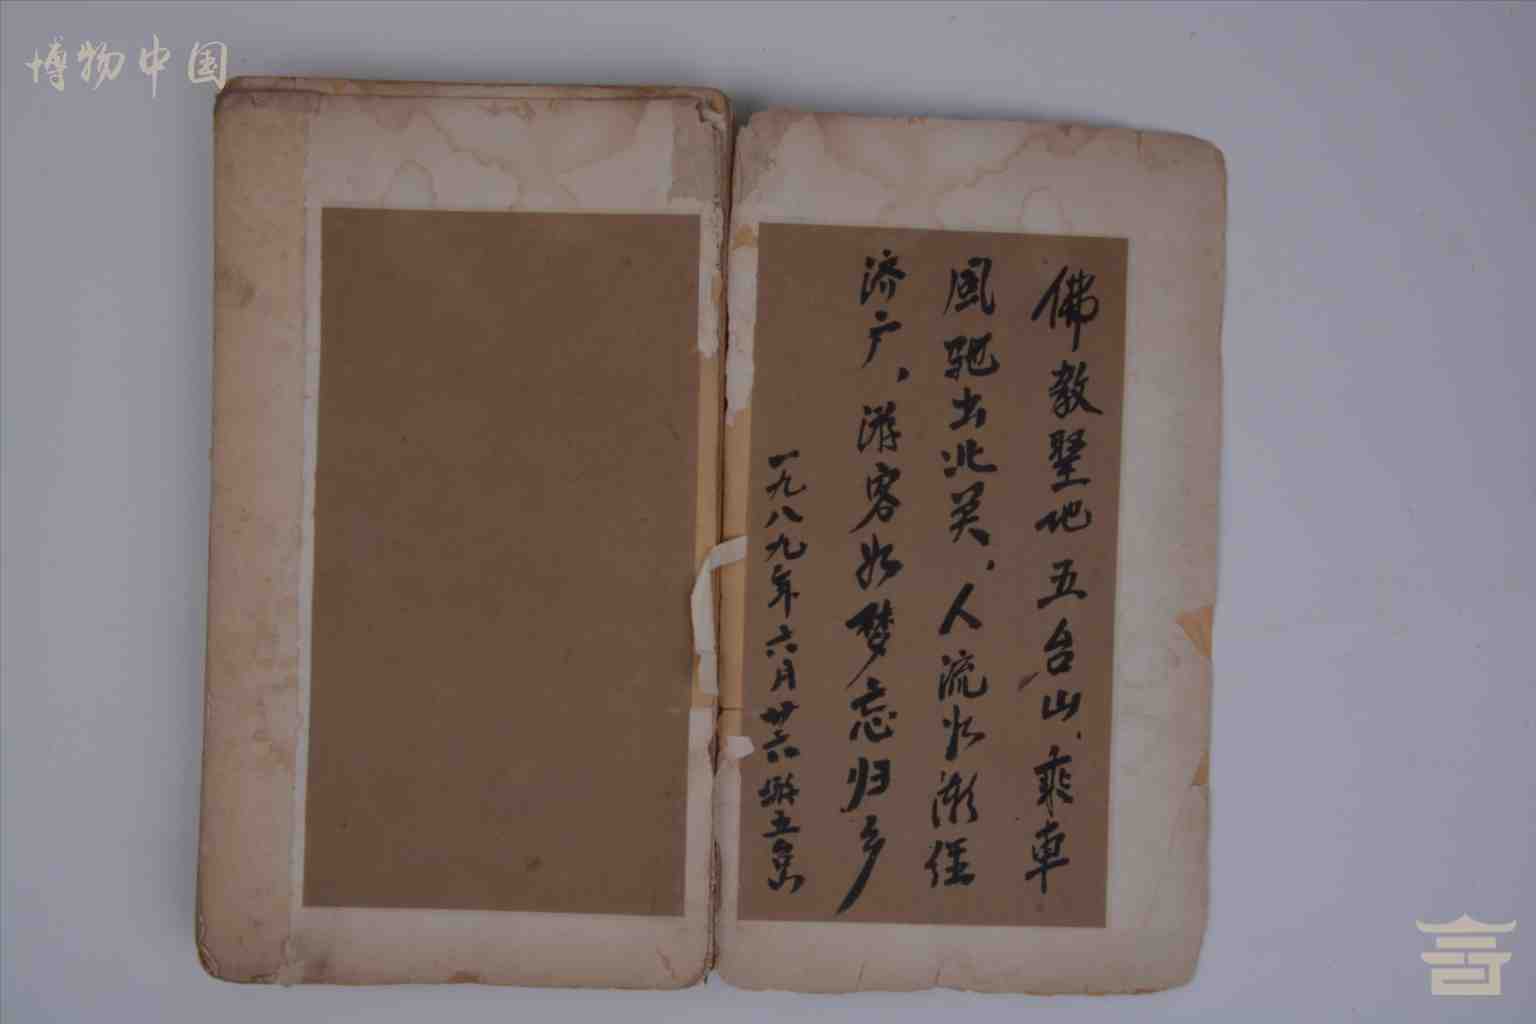 博物中国
佛教圣地五台山，乘車
風驰出北关，人流此渐经
济广，游客如梦忘归乡
一九八九年六月廿六游五台山